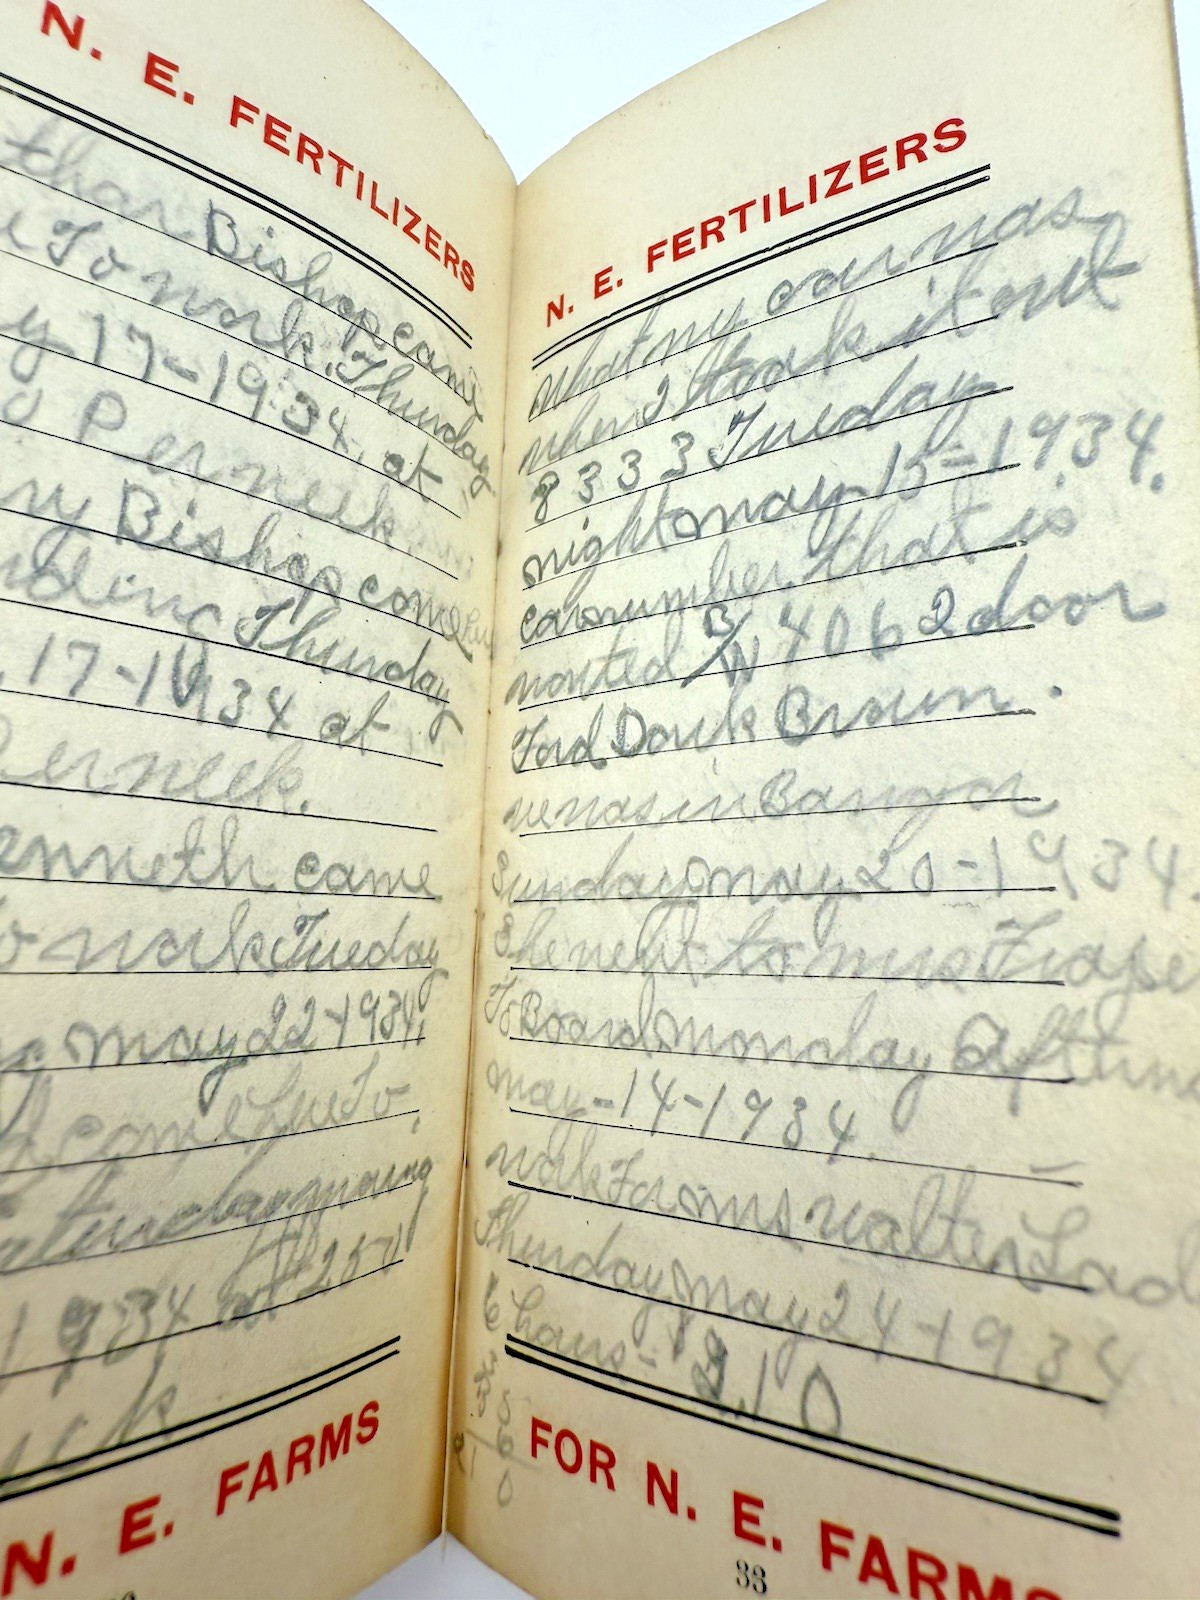 N. E. FERTILIZERS
than Bishop came
To work. Thursday
y 17-1934. at
o Perneek
ry Bishop come
nding Thursday
. 17-1934 at
Perneek.
enneth came
o work Tueday
may 22-1934.
h come Live To
aturday morning
1934 at 250
N. E. FARMS
N. E. FERTILIZERS
What my car was
when I took it out
8333 Tueday
night may 15-1934.
car number that is
wonted B/W 4062 door
Ford Dark Brown.
we was in Bangor
Sunday may 20-1934.
She went to mrs Frase
To Board monday afterno
may-14-1934.
work For ms walter Lad
Thurday may 24-1934
6 hours - 2.10
35
6
210
FOR N. E. FARMS
33